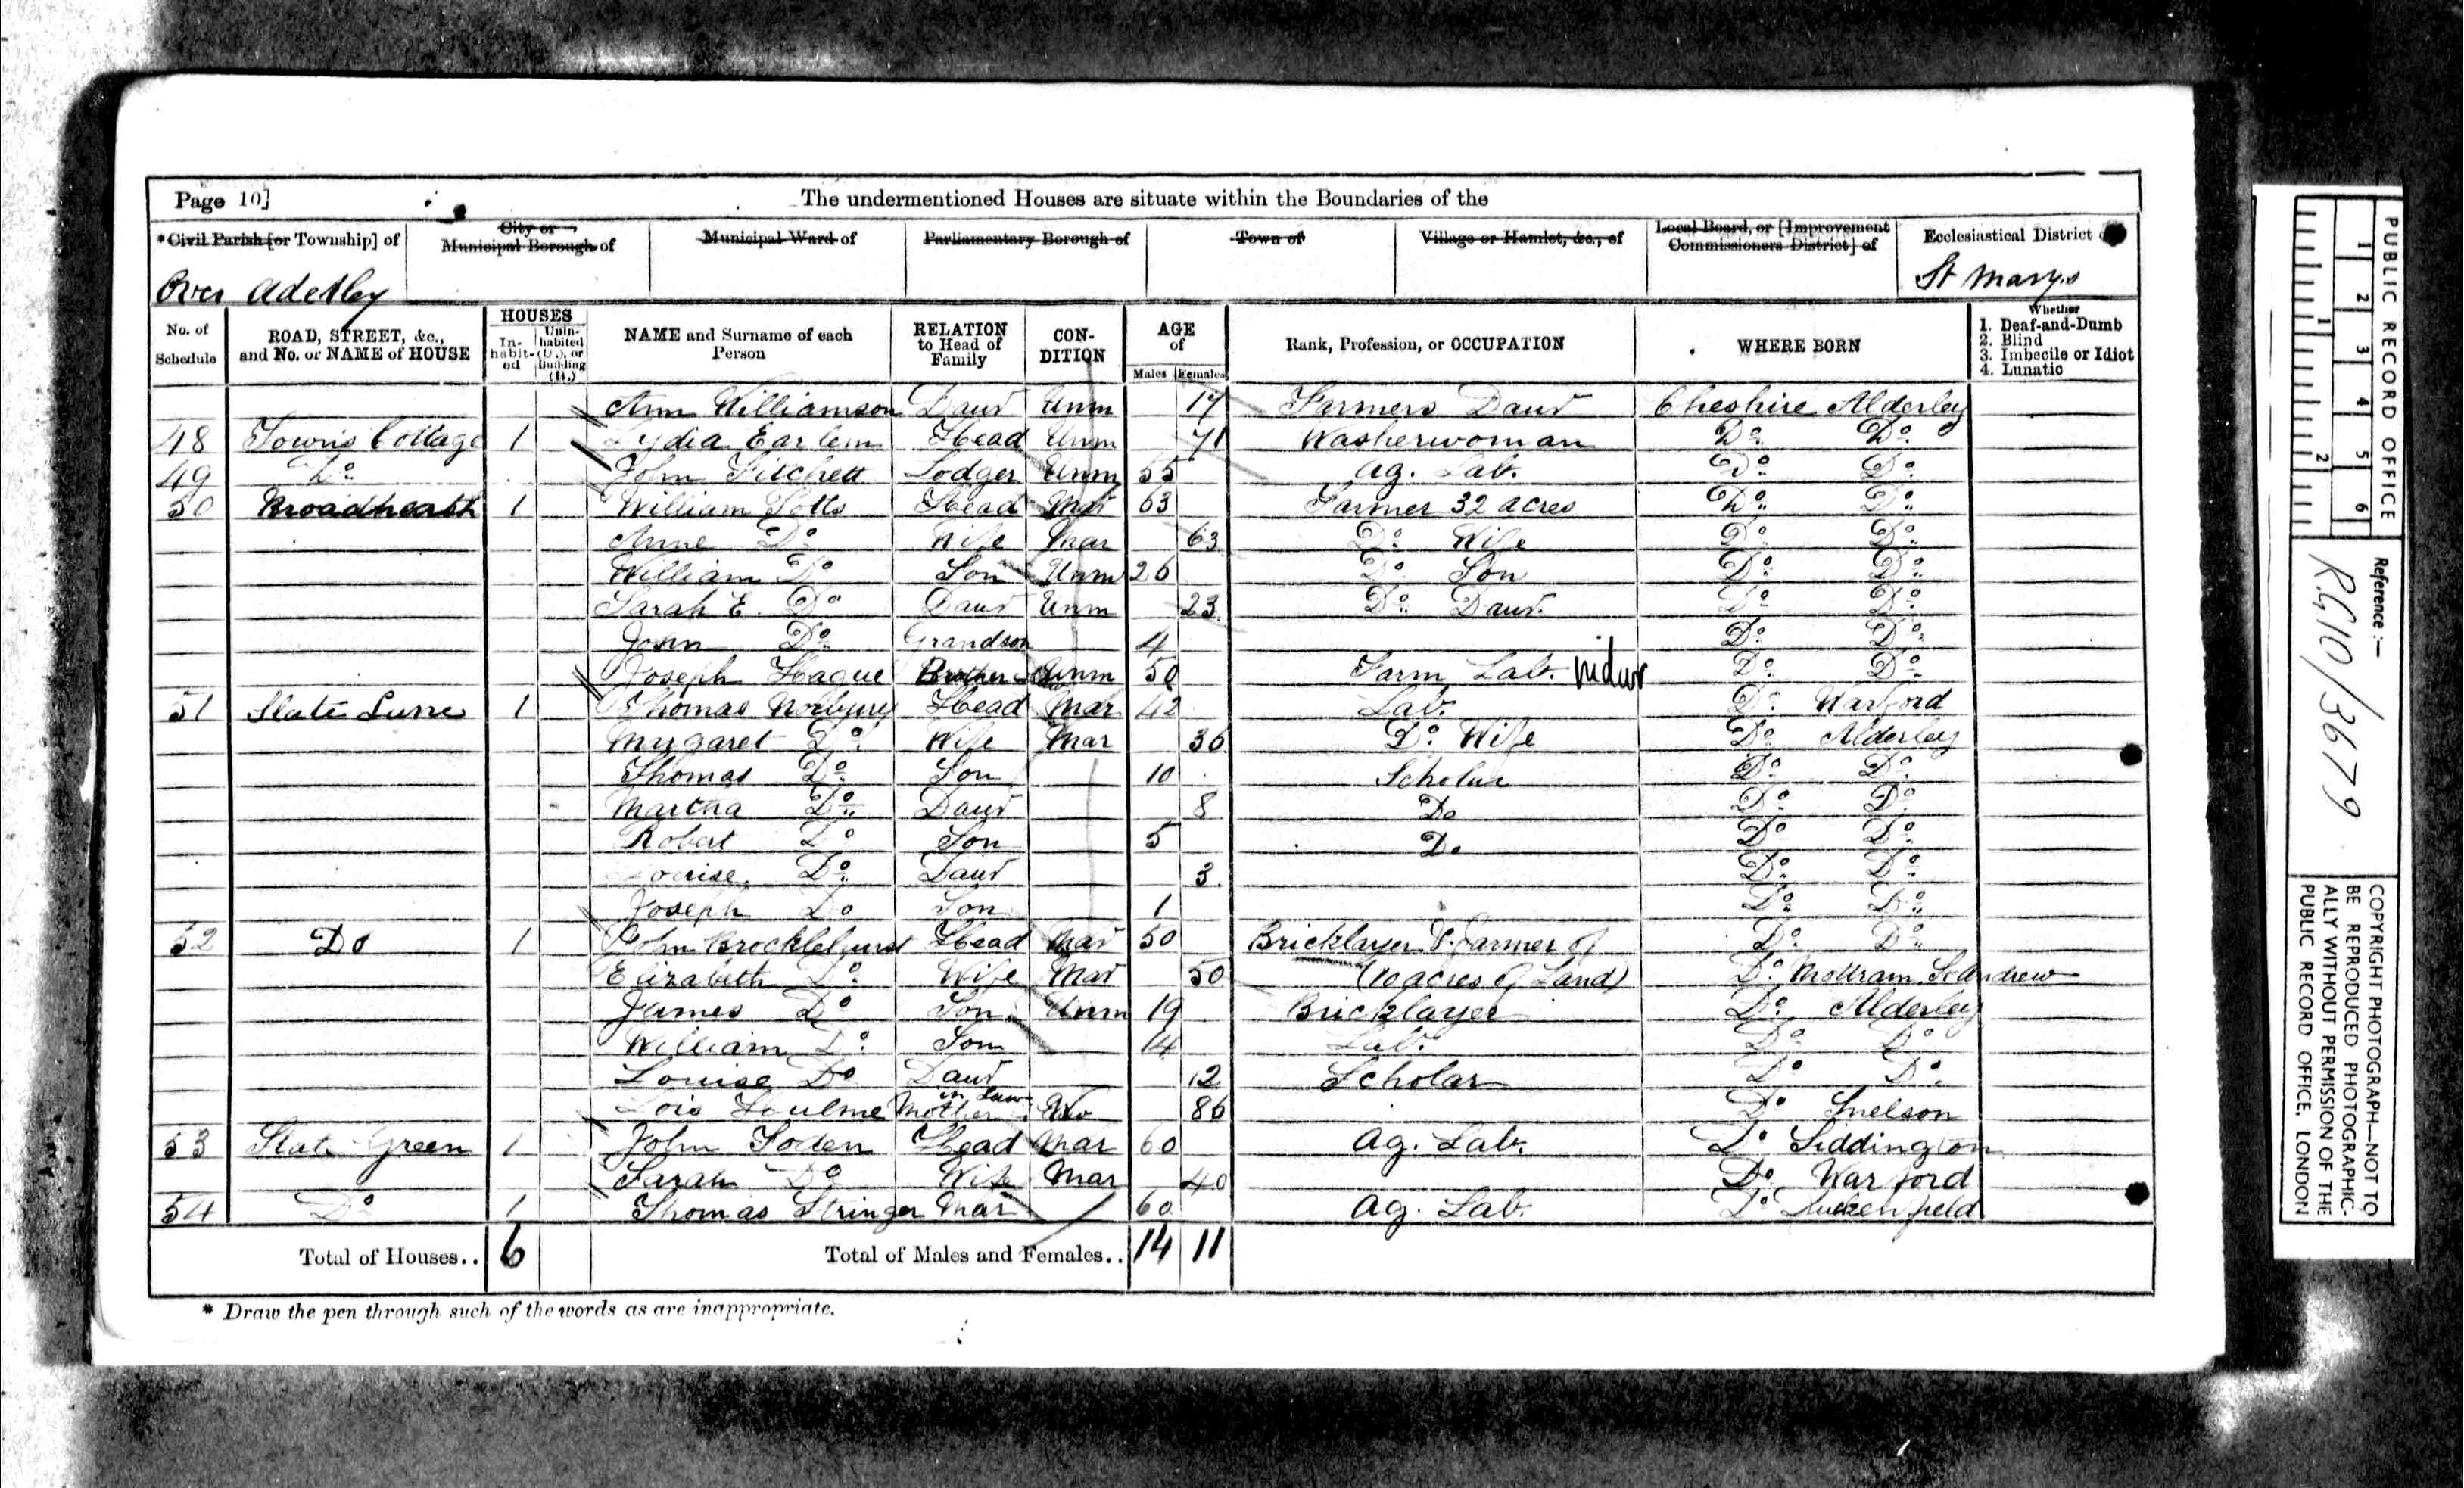 Page 10]
The undermentioned Houses are situate within the Boundaries of the
*Civil Parish [or Township] of
City or Municipal Borough of
Municipal Ward of
Parliamentary Borough of
Town of
Village or Hamlet, &c., of
Local Board, or [Improvement Commissioners District] of
Ecclesiastical District of
Over Aderley
St Mary's
No. of Schedule
ROAD, STREET, &c., and No. or NAME of HOUSE
HOUSES
In-habit-ed
Unin-habited (U.), or Building (B.)
NAME and Surname of each Person
RELATION to Head of Family
CON-DITION
AGE of
Males
Females
Rank, Profession, or OCCUPATION
WHERE BORN
Whether
1. Deaf-and-Dumb
2. Blind
3. Imbecile or Idiot
4. Lunatic
Ann Williamson Daur Unm 17 Farmers Daur Cheshire Alderley
48 Towns Cottage 1 Lydia Earlem Head Unm 71 Washerwoman Do Do
49 Do John Fitchett Lodger Unm 55 Ag. Lab. Do Do
50 Broadheath 1 William Potts Head Mar 63 Farmer 32 acres Do Do
Anne Do Wife Mar 63 Do Wife Do Do
William Do Son Unm 26 Do Son Do Do
Sarah E. Do Daur Unm 23 Do Daur. Do Do
John Do Grandson 4 Do Do
Joseph Hague Brother Unm 50 Farm Lab. Do Do
51 Slate Lane 1 Thomas Norbury Head Mar 42 Lab. Do Warford
Margaret Do Wife Mar 36 Do Wife Do Alderley
Thomas Do Son 10 Scholar Do Do
Martha Do Daur 8 Do Do Do
Robert Do Son 5 Do Do Do
Louise Do Daur 3 Do Do
Joseph Do Son 1 Do Do
52 Do 1 John Brocklehurst Head Mar 50 Bricklayer & Farmer of Do Do
Elizabeth Do Wife Mar 50 (10 acres of Land) Do Mottram St Andrew
James Do Son Unm 19 Bricklayer Do Alderley
William Do Son 14 Lab. Do Do
Louise Do Daur 12 Scholar Do Do
Lois Hulme Mother in Law Wo 86 Do Snelson
53 Slate Green 1 John Soden Head Mar 60 Ag. Lab. Do Siddington
Sarah Do Wife Mar 40 Do Warford
54 Do 1 Thomas Stringer Mar 60 Ag. Lab. Do Duckenfield
Total of Houses.. 6
Total of Males and Females.. 14 11
* Draw the pen through such of the words as are inappropriate.
PUBLIC RECORD OFFICE
1 2 3 4 5 6
1 2
Reference:—
RG10/3679
COPYRIGHT PHOTOGRAPH—NOT TO
BE REPRODUCED PHOTOGRAPHIC-
ALLY WITHOUT PERMISSION OF THE
PUBLIC RECORD OFFICE, LONDON